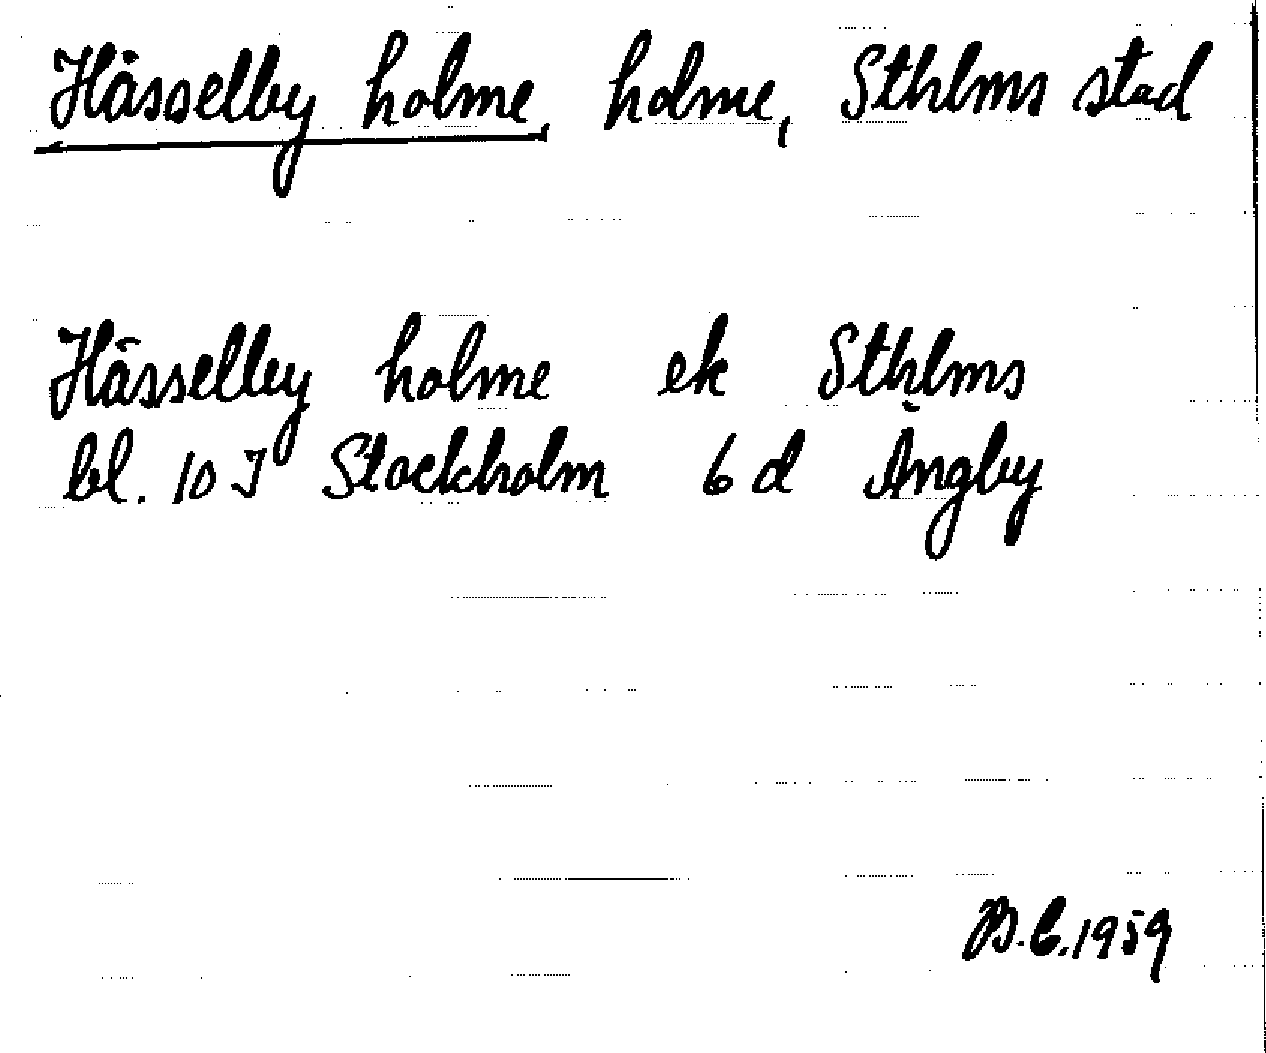 Hässelby holme, holme, Sthlms stad
Hässelby holme ek Sthlms
bl. 10 I Stockholm 6 d Ängby
B.C. 1959